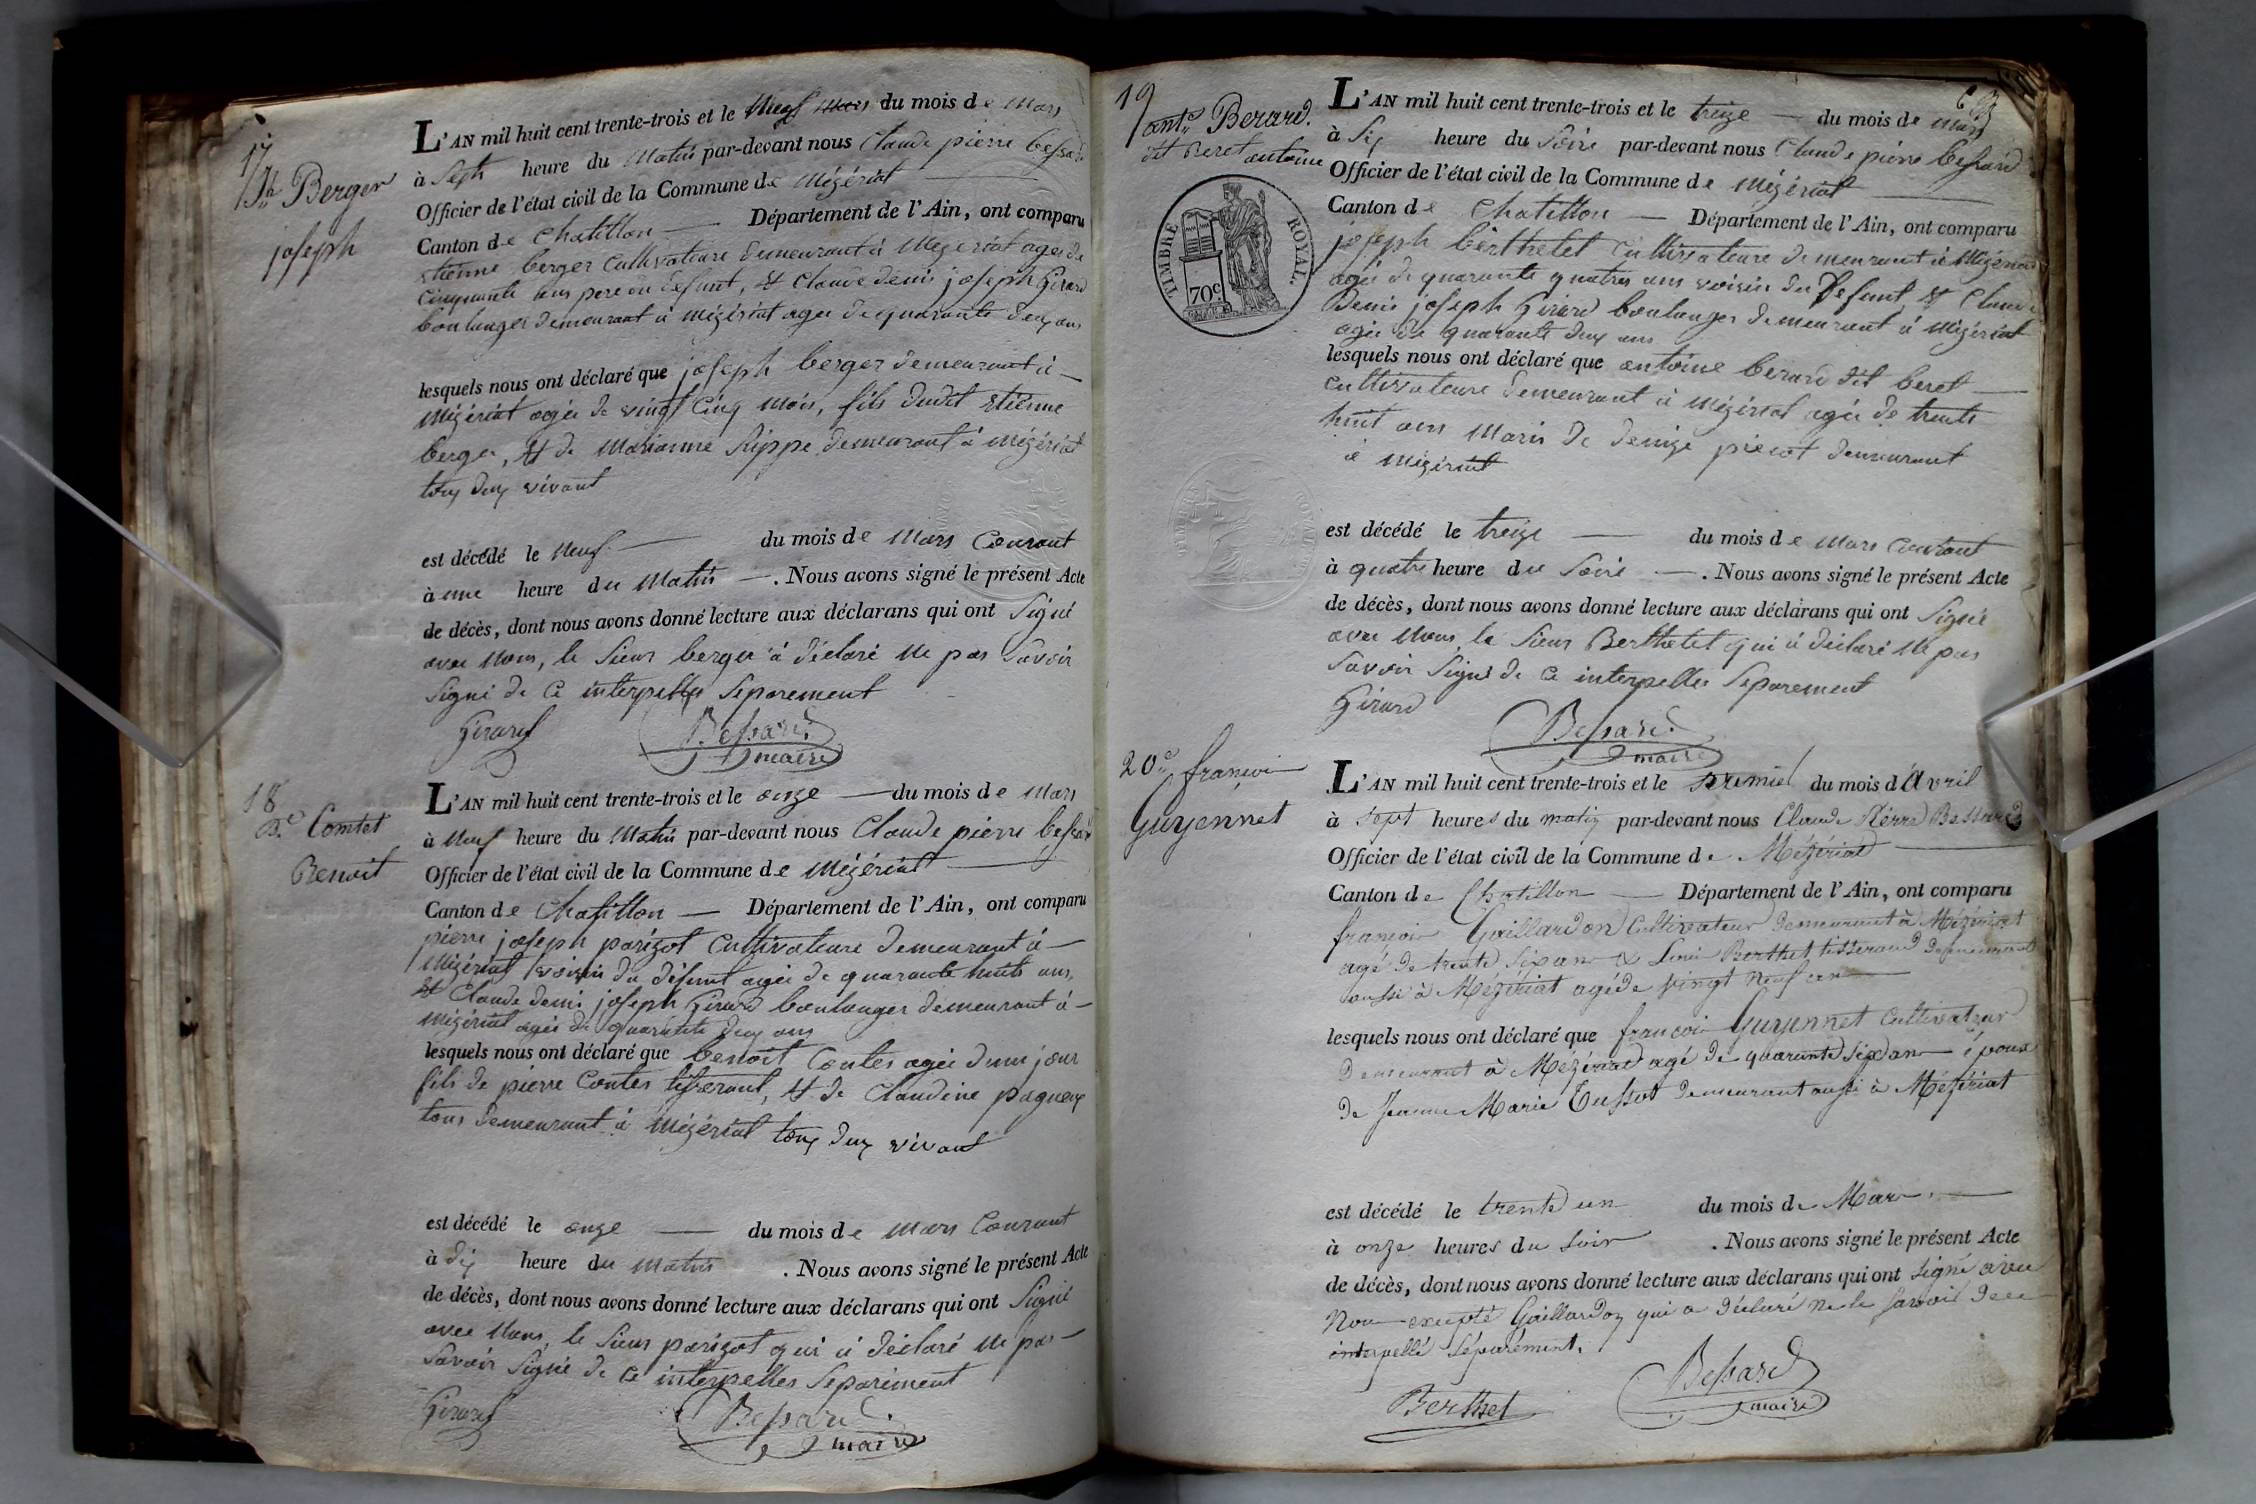 17
Jh Berger
joseph
L'AN mil huit cent trente-trois et le neuf du mois de mars
à sept heure du matin par-devant nous Claude pierre bessard
Officier de l'état civil de la Commune de Mézériat
Canton de Chatillon — Département de l'Ain, ont comparu
etienne berger cultivateure demeurant à Mezeriat agée de
cinquante ans pere du defunt, et Claude denis joseph Girard
boulanger demeurant à mézériat agée de quarante deux ans
lesquels nous ont déclaré que joseph berger demeurant à —
Mézériat agée de vingt cinq mois, fils dudit etienne
berger, et de Marianne Rippe demeurant à mézériat
tous deux vivant
est décédé le neuf — du mois de mars Courant
à une heure du Matin —. Nous avons signé le présent Acte
de décès, dont nous avons donné lecture aux déclarans qui ont Signé
avec Nous, le Sieur berger à déclaré ne pas Savoir
Signé de ce interpelles Séparement
Girard Bessard
maire
18
Bt Comtet
Benoit
L'AN mil huit cent trente-trois et le onze — du mois de mars
à neuf heure du Matin par-devant nous Claude pierre bessard
Officier de l'état civil de la Commune de Mézériat —
Canton de Chatillon — Département de l'Ain, ont comparu
pierre joseph parizot cultivateure demeurant à —
Mézériat voisin du défunt agée de quarante huit ans,
et Claude denis joseph Girard boulanger demeurant à —
mézériat agée de quarante deux ans
lesquels nous ont déclaré que benoit Contes agée d'un jour
fils de pierre Contes tisserant, et de Claudine pagueux
tous demeurant à Mézériat tous deux vivant
est décédé le onze — du mois de mars Courant
à dix heure du matin . Nous avons signé le présent Acte
de décès, dont nous avons donné lecture aux déclarans qui ont Signé
avec Nous, le Sieur parizot qui à déclaré ne pas —
Savoir Signé de ce interpelles Séparement
Girard Bessard
maire
63
19
antne Berard.
dit Beret antoine
TIMBRE ROYAL.
70c.
L'AN mil huit cent trente-trois et le treize — du mois de mars
à Six heure du Soire par-devant nous Claude pierre bessard
Officier de l'état civil de la Commune de Mézériat —
Canton de Chatillon — Département de l'Ain, ont comparu
joseph berthelet Cultivateure demeurant à Mézériat
agée de quarante quatres ans voisin du defunt, et Claude
Denis joseph Girard boulanger demeurant à Mézériat
agée de quarante deux ans
lesquels nous ont déclaré que antoine berard dit beret —
cultivateure demeurant à Mézériat agée de trente
huit ans Maris de denize pierot demeurant
à Mézériat
est décédé le treize — du mois de mars Courant
à quatre heure du Soire —. Nous avons signé le présent Acte
de décès, dont nous avons donné lecture aux déclarans qui ont Signé
avec Nous, le Sieur Berthelet qui à déclaré ne pas
Savoir Signé de ce interpelles Séparement
Girard Bessard
maire
20e françois
Guyennet
L'AN mil huit cent trente-trois et le premier du mois d'Avril
à sept heures du matin par-devant nous Claude Pierre Bessard
Officier de l'état civil de la Commune de Mézériat —
Canton de Chatillon — Département de l'Ain, ont comparu
françois Gaillardon Cultivateur demeurant à Mézériat
agé de trente six ans & Louis Berthet tisserand demeurant
aussi à Mézériat agé de vingt neuf ans
lesquels nous ont déclaré que francois Guyennet Cultivateur
Demeurant à Mézériat agé de quarante six ans époux
de Jeanne Marie Tussot demeurant aussi à Mézériat
est décédé le trente un du mois de Mars —
à onze heures du soir . Nous avons signé le présent Acte
de décès, dont nous avons donné lecture aux déclarans qui ont signé avec
Nous excepté Gaillardon qui a déclaré ne le savoir de ce
interpellé séparément.
Berthet Bessard
maire